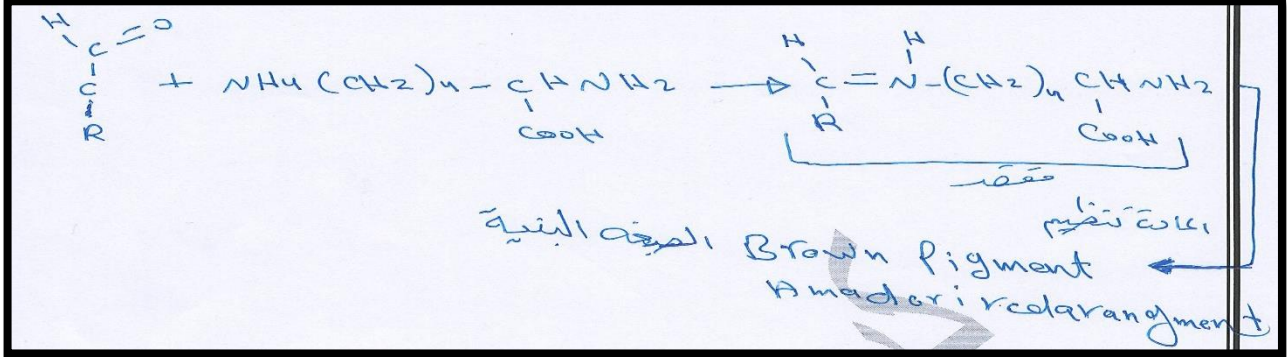 H
C=O
C
R
+ NH4 (CH2)4 - CHNH2
COOH
H H
C = N-(CH2)4 CHNH2
R COOH
معقد
اعادة تنظيم
الصبغة البنية Brown Pigment
Amadori redarangment